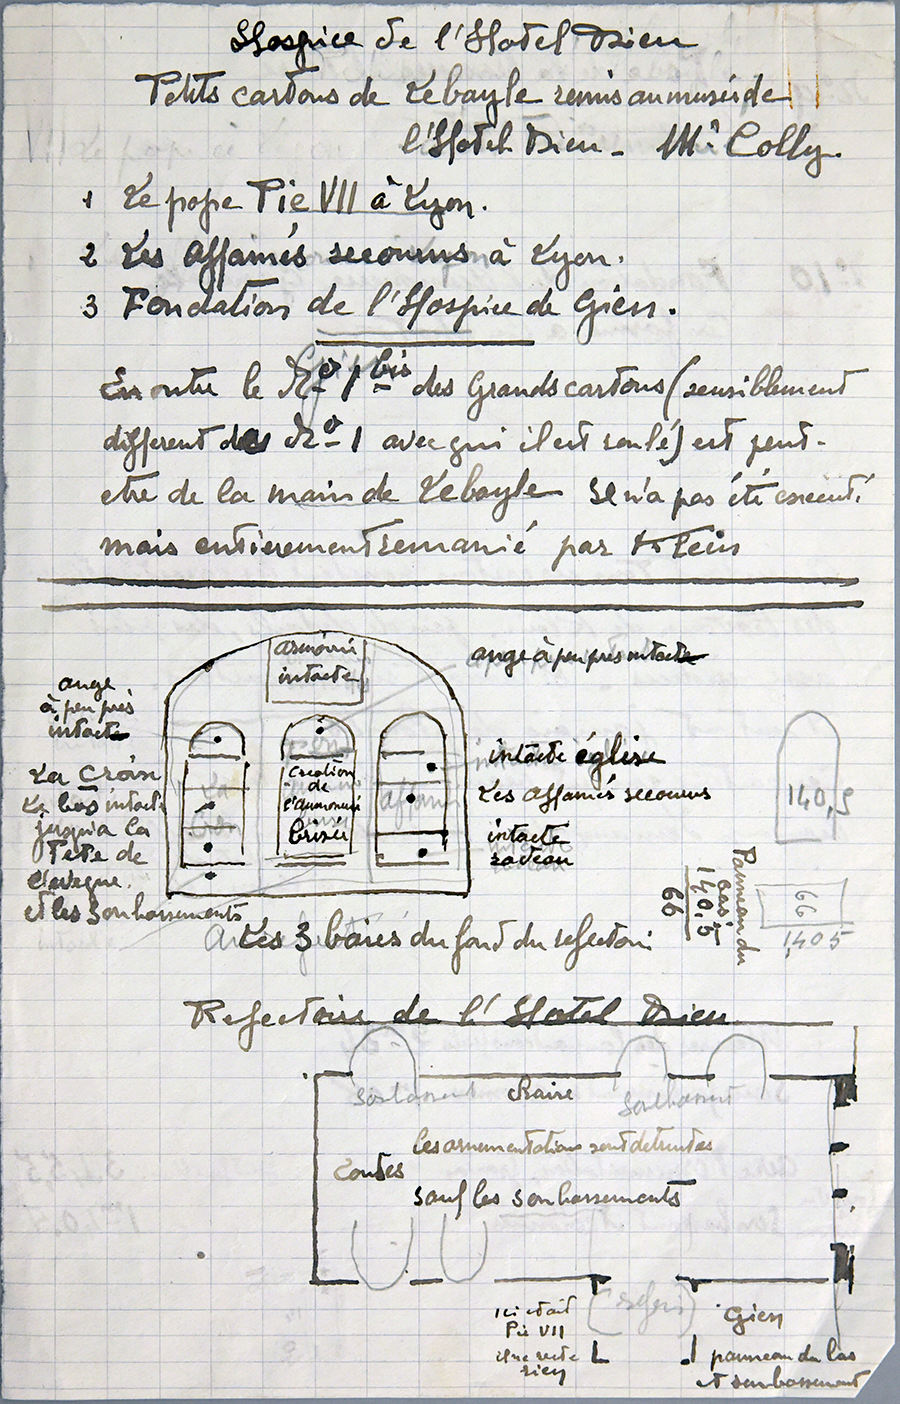 Hospice de l'Hotel Dieu
Petits cartons de Lebayle remis au musée de
l'Hotel Dieu - Mr Colly.
1 Le pape Pie VII à Lyon.
2 Les Affamés secourus à Lyon.
3 Fondation de l'Hospice de Gien.
En outre le No 1 bis des Grands cartons (sensiblement
different des No 1 avec qui il est roulé) est peut-
etre de la main de Lebayle Il n'a pas été executé
mais entierement remanié par
armoirie
intacte
ange à peu pres intacte
ange
à peu près
intacte
La Croix
Le bas intact
jusqu'a la
Tete de
l'eveque.
et les soubassements
Creation
de
l'aumonerie
brisée
intacte église
Les Affamés secourus
intacte
radeau
140,5
Panneau du
bas
140,5
66
66
1,405
Les 3 baies du fond du refectoire
Refectoire de l'Hotel Dieu
soubassement
Chaire
soubassement
Toutes
les ornementations sont detruites
sauf les soubassements
ici etait
Pie VII
il ne reste
rien
Gien
panneau du bas
et soubassement